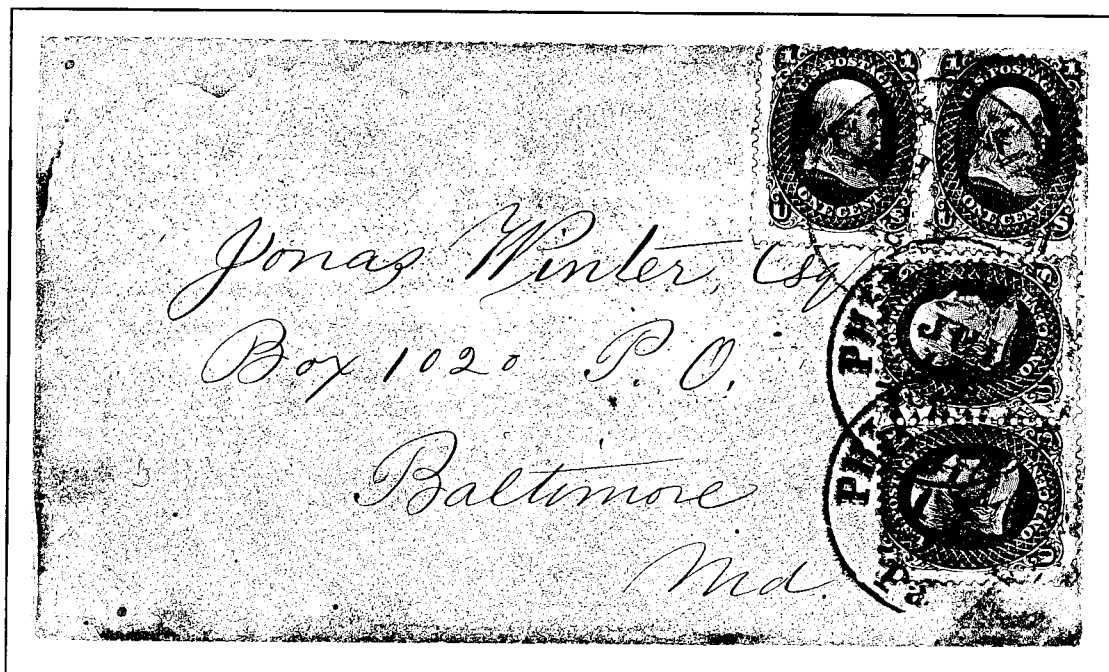 1 U.S. POSTAGE 1
ONE CENT
U S
1 U.S. POSTAGE 1
ONE CENT
U S
Jonas Winter, Esq
Box 1020 P. O.
Baltimore
Md.
PHI
PHI
Pa